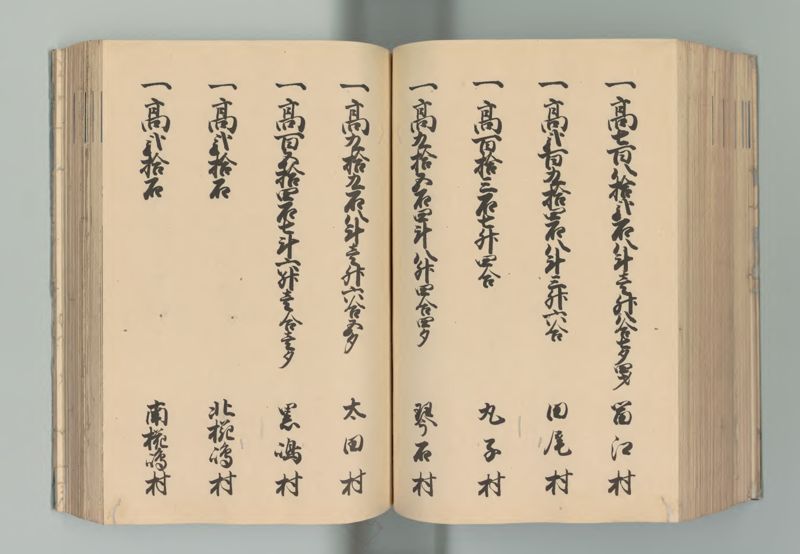 一高七百八拾弐石八斗壱升八合七夕四才 留江村
一高弐百九拾四石八斗三升六合 田尾村
一高百拾三石七升四合 丸子村
一高九拾五石四斗八升四合四夕 琴石村
一高九拾九石八斗壱升六合五夕 太田村
一高百五拾四石七斗六升壱合壱夕 黒嶋村
一高弐拾石 北椛嶋村
一高弐拾石 南椛嶋村